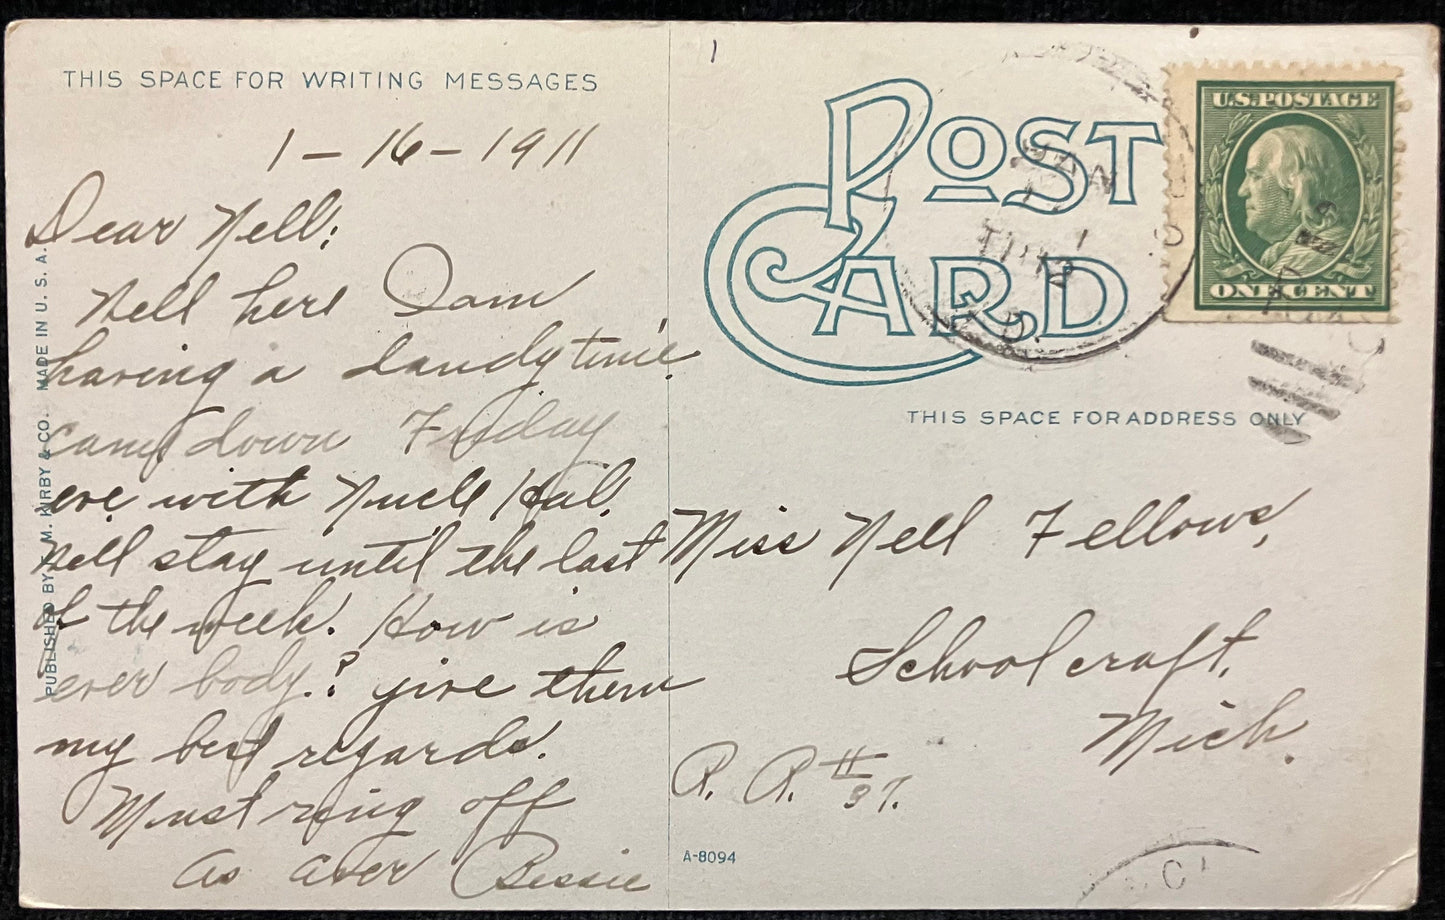 THIS SPACE FOR WRITING MESSAGES
1 - 16 - 1911
Dear Nell:
Nell here I am
having a dandy time.
came down Friday
eve with Uncle Hal.
Will stay until the last
of the week. How is
ever body.? give them
my best regards.
Must ring off
As aver Bessie
PUBLISHED BY F. M. KIRBY & CO. MADE IN U. S. A.
1
POST
CARD
U.S. POSTAGE
ONE CENT
JAN
THIS SPACE FOR ADDRESS ONLY
Miss Nell Fellows,
Schoolcraft,
Mich.
R. R. # 37.
A-8094